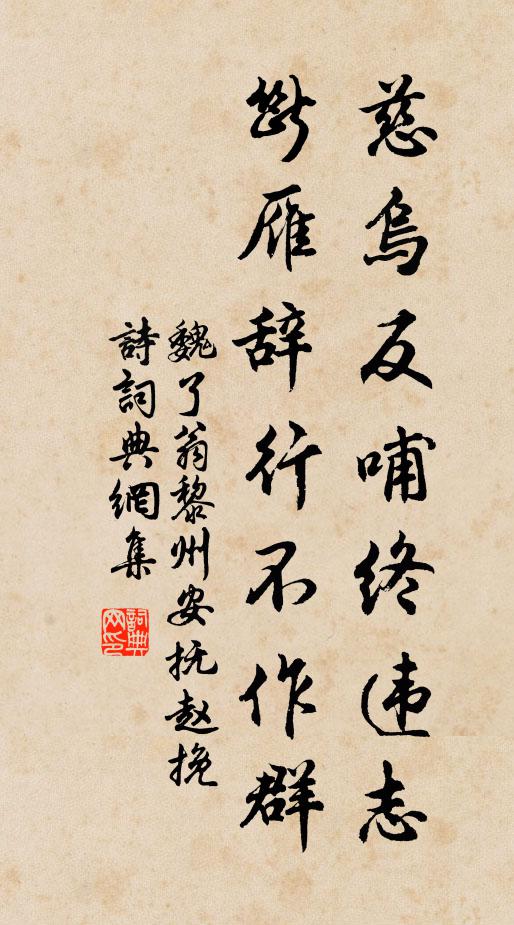 慈烏反哺终违志
断雁辞行不作群
魏了翁黎州安抚赵挽
詩詞典網集
詞典网印